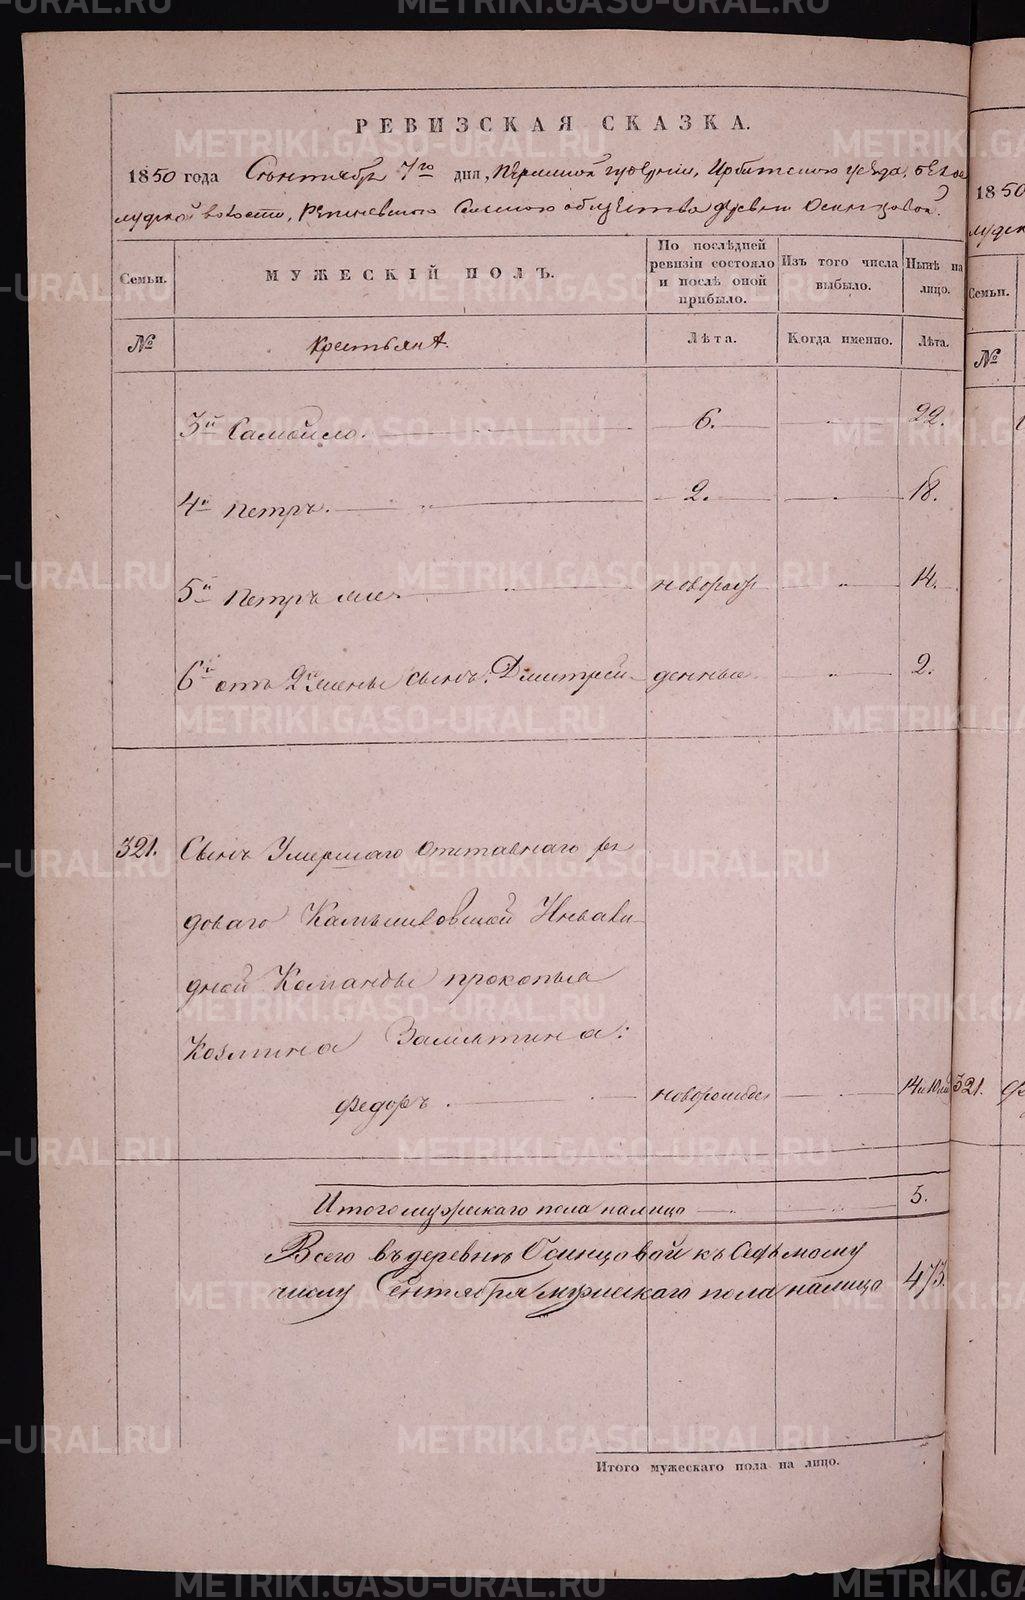 РЕВИЗСКАЯ СКАЗКА.
1850 года Сентября 7го дня, Пермской губерніи, Ирбитскаго уезда, Бело
слудской волости, Репинскаго Сельскаго общества деревни Осинцовой.
Семьи. МУЖЕСКІЙ ПОЛЪ. По послѣдней ревизіи состояло и послѣ оной прибыло. Изъ того числа выбыло. Нынѣ на лицо.
№ Крестьянъ Лѣта. Когда именно. Лѣта.
3й Самойло. 6. 22.
4й Петръ. 2. 18.
5й Петръ же новорож 14.
6й отъ 2й жены сынъ: Дмитрей денные 2.
321. Сынъ Умершаго отставнаго ря
доваго Камышловской Инвали
дной Команды Прокопья
Козмина Замятина:
Федоръ новорожден 14 и 10
Итого мужескаго пола налицо 5.
Всего въ деревнѣ Осинцовой къ Седьмому
числу Сентября мужескаго пола налицо 473.
Итого мужескаго пола на лицо.
1850
Семьи.
№
321.
METRIKI.GASO-URAL.RU